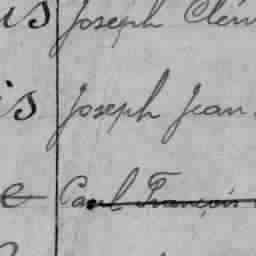 us Joseph Clém
is Joseph Jean
e Paul François